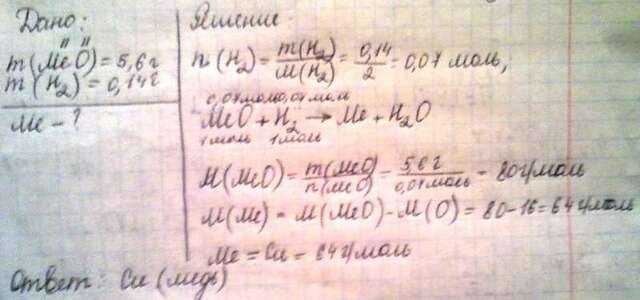 Дано:
m(MeO) = 5,6г
m(H₂) = 0,14г
Me - ?
Решение:
n(H₂) = m(H₂)/M(H₂) = 0,14/2 = 0,07 моль,
0,07моль 0,07моль
MeO + H₂ → Me + H₂O
1моль 1моль
M(MeO) = m(MeO)/n(MeO) = 5,6г/0,07моль = 80г/моль
M(Me) = M(MeO) - M(O) = 80 - 16 = 64г/моль
Me = Cu = 64г/моль
Ответ: Cu (медь)